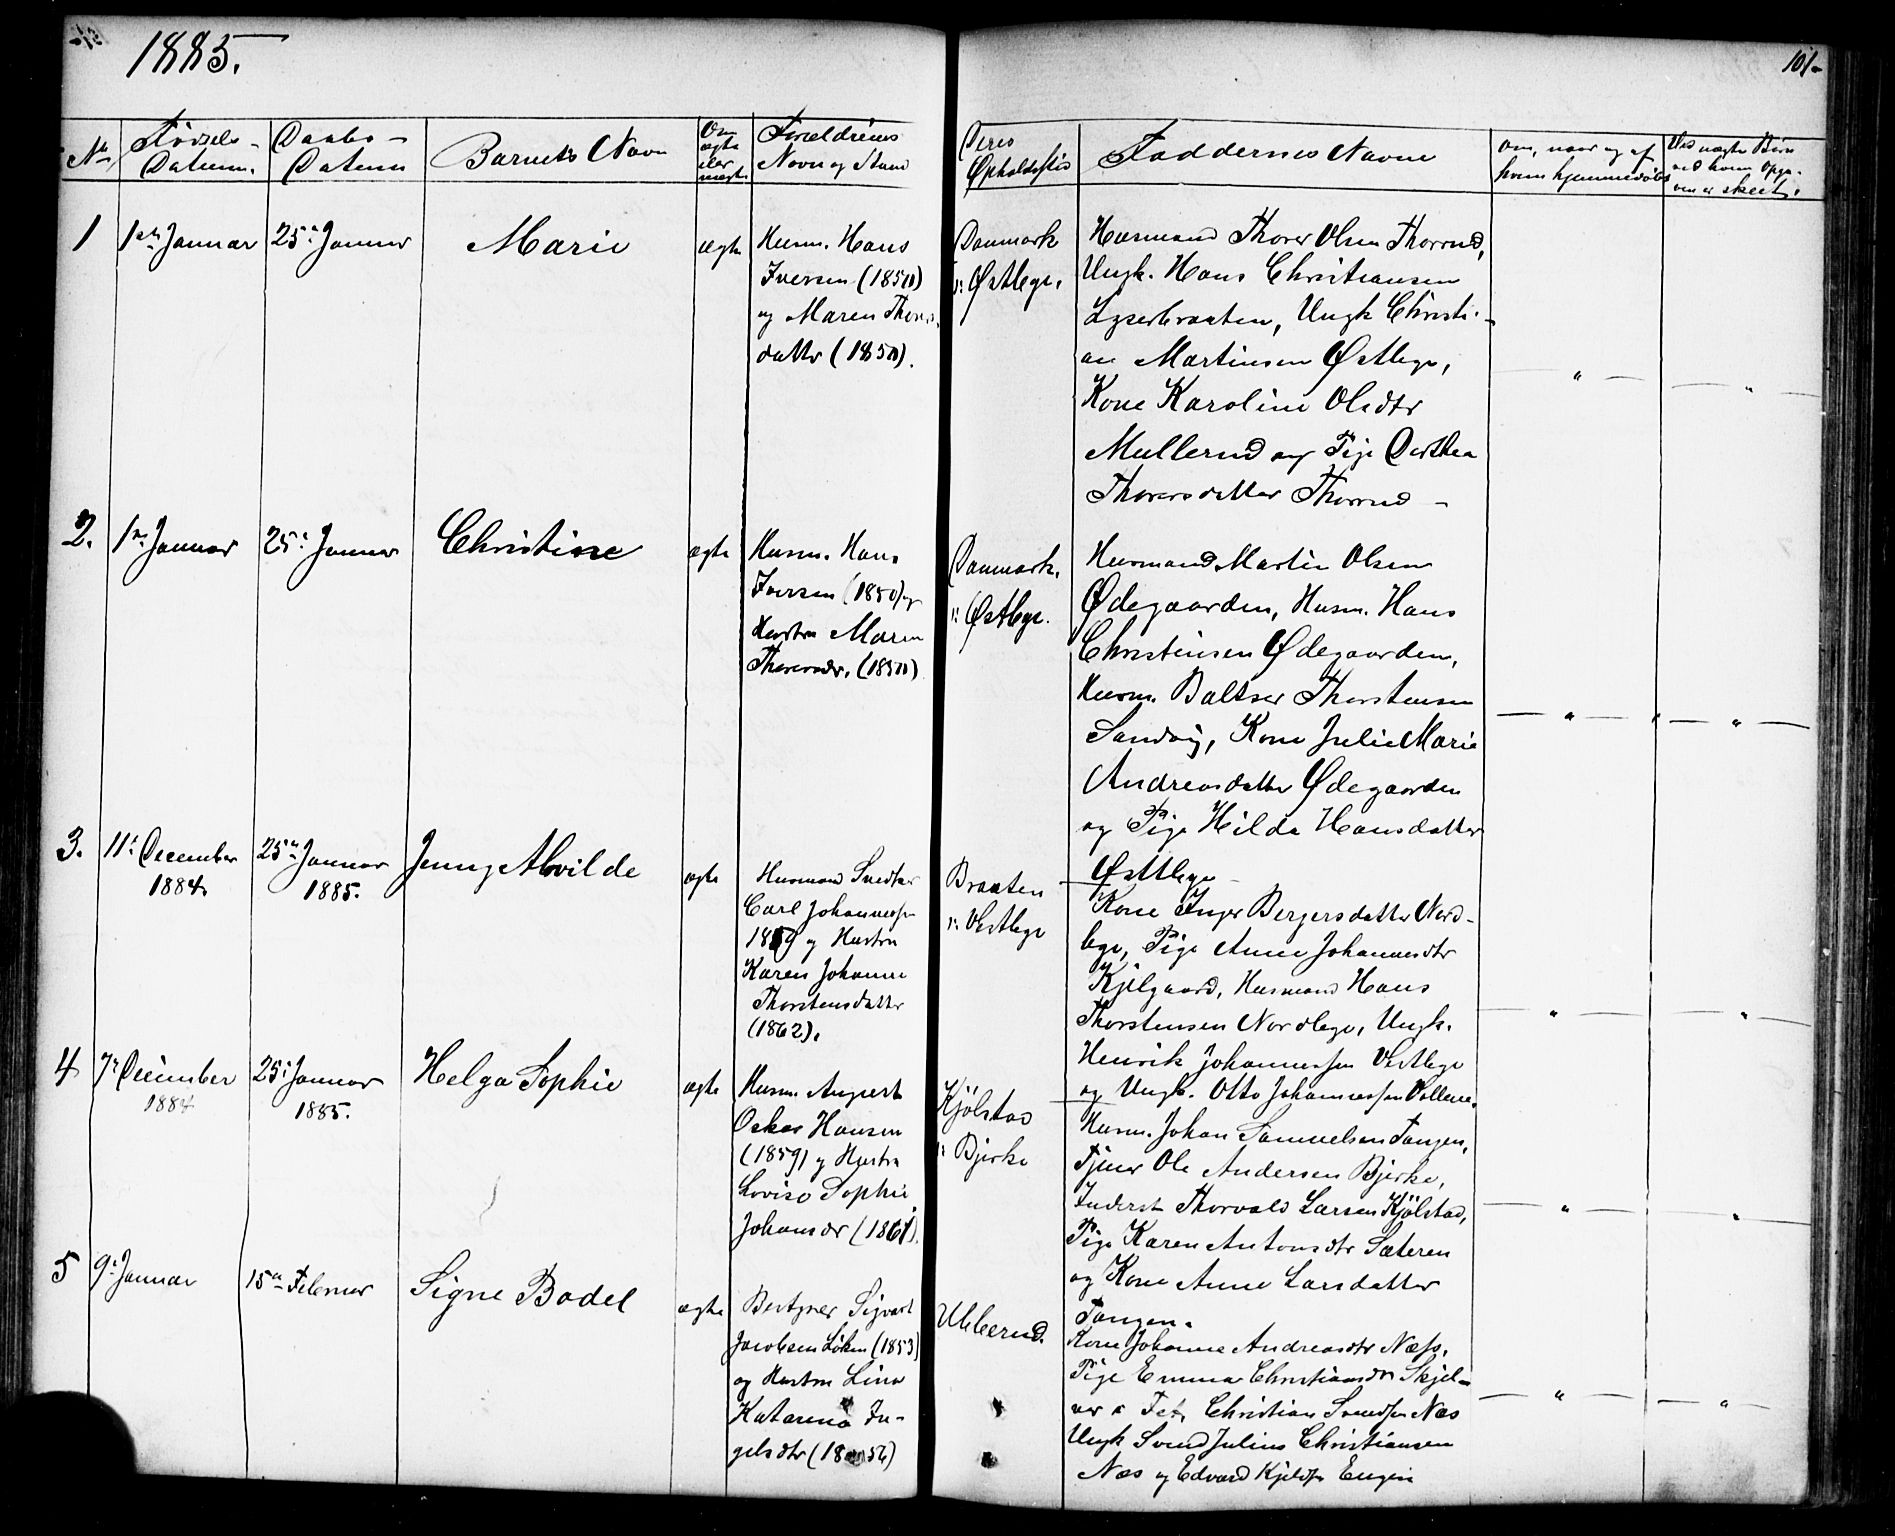 1885.
101-
No
Fødsels-
Datum.
Daabs-
Datum
Barnets Navn
Om
ægte
eller
uægte
Forældrenes
Navn og Stand
Deres
Opholdssted
Faddernes Navne
Om, naar og af
hvem hjemmedøbt
Ved uægte Børn
ved hvem Opga-
ven er skeet.
1
1ste Januar
25de Januar
Marie
ægte
Husm. Hans
Iversen (1850)
og Maren Thores-
datter (1850).
Danmark
v: Østbye.
Husmand Thorer Olsen Thorrud,
Ungk. Hans Christiansen
Lyserbraaten, Ungk Christi-
an Martinsen Østbye,
Kone Karoline Olsdtr
Mullerud og Pige Dorthea
Thorersdatter Thorrud -
- " -
"
2.
1ste Januar
25de Januar
Christine
ægte
Husm. Hans
Iversen (1850) og
Hustru Maren
Thorersdr. (1850)
Danmark,
v: Østbye.
Husmand Martin Olsen
Ødegaarden, Husm. Hans
Christensen Ødegaarden,
Husm. Baltser Thorstensen
Sandvig, Kone Julie Marie
Andreasdatter Ødegaarden
og Pige Hilda Hansdatter
Østbye -
- " -
- " -
3.
11te December
1884.
25de Januar
1885.
Jenny Alvilde
ægte
Husmand Snedker
Carl Johannessen
1859 og Hustru
Karen Johanne
Thorstensdatter
(1862).
Braaten
v: Vestbye
Kone Inger Bergersdatter Nord-
bye, Pige Anne Johannesdtr
Kjelgaard, Husmand Hans
Thorstensen Nordbye, Ungk.
Henrik Johannessen Vestbye
og Ungk. Otto Johannessen Vollene.
- " -
"
4
7de December
1884
25de Januar
1885.
Helga Sophie
ægte
Husm. August
Oskar Hansen
(1859) og Hustru
Lovise Sophie
Johansdr (1861).
Kjølstad
v: Bjerke
Husm. Johan Samuelsen Tangen,
Tjener Ole Andersen Bjerke,
Inderst Thorvald Larsen Kjølstad,
Pige Karen Antonsdtr Sæteren
og Kone Anne Larsdatter
Tangen.
- " -
"
5
9de Januar
15de Februar
Signe Bodel
ægte
Bestyrer Sigvart
Jacobsen Løken (1853)
og Hustru Lina
Katarina In-
gelsdtr (1856)
Ulberud.
Kone Johanne Andreasdtr Næss,
Pige Emma Christiansdtr Skjel-
ver i Fet, Christian Svendsen Næs
Ungk Svend Julius Christiansen
Næs og Edvard Kjeldsen Engen
- " -
- " -